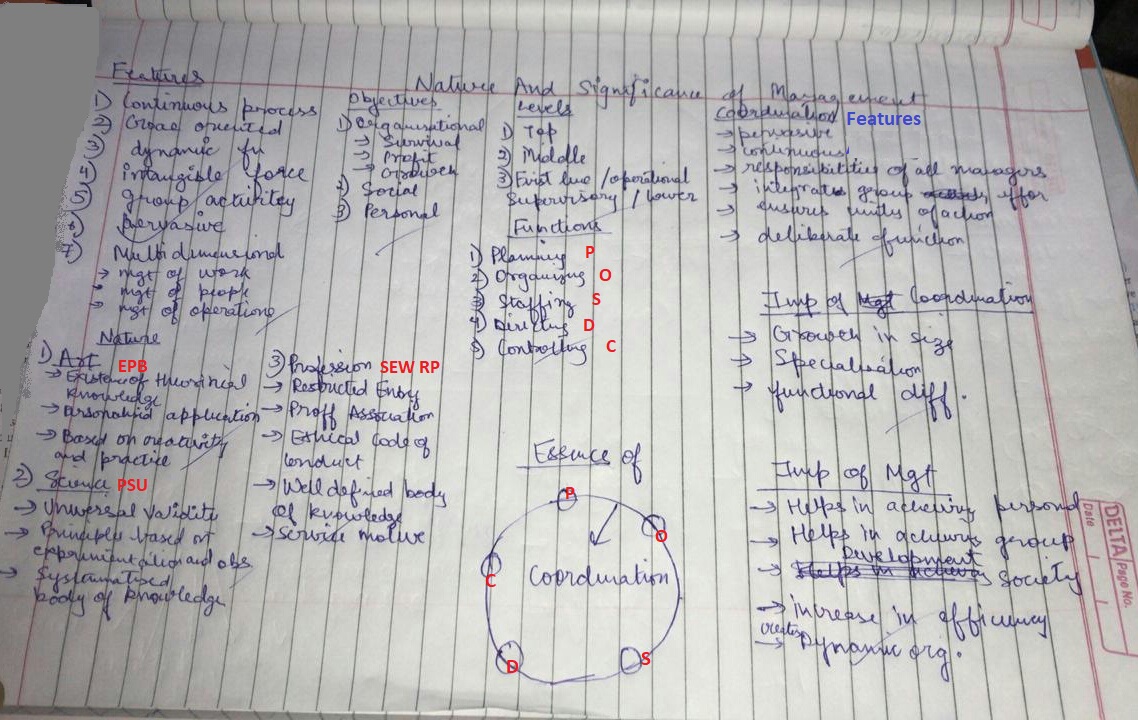 Nature And Significance of Management
Features
1) Continuous process
2) Goal oriented
3) dynamic fn
4) intangible force
5) group activity
6) Pervasive
7) Multidimensional
→ mgt of work
→ mgt of people
→ mgt of operations
Objectives
1) Organisational
→ Survival
→ Profit
→ Growth
2) Social
3) Personal
Levels
1) Top
2) Middle
3) First line / operational
Supervisory / Lower
Functions
1) Planning P
2) Organizing O
3) Staffing S
4) Directing D
5) Controlling C
Coordination Features
→ pervasive
→ continuous
→ responsibilities of all managers
→ integrates group effor
→ ensures units of action
→ deliberate function
Imp of Mgt Coordination
→ Growth in size
→ Specialisation
→ functional diff.
Nature
1) Art EPB
→ Existence of theoritical
knowledge
→ Personalised application
→ Based on creativity
and practice
2) Science PSU
→ Universal validity
→ Principles based on
experimentation and obs
→ Systematised
body of knowledge
3) Profession SEW RP
→ Restricted Entry
→ Proff Association
→ Ethical Code of
Conduct
→ Well defined body
of knowledge
→ Service motive
Essence of
P
O
C
Coordination
D
S
Imp of Mgt
→ Helps in achieving personal
→ Helps in achieving group
Development
→ Helps in achieving Society
→ increase in efficiency
creates
→ Dynamic org.
DELTA Page No.
Date